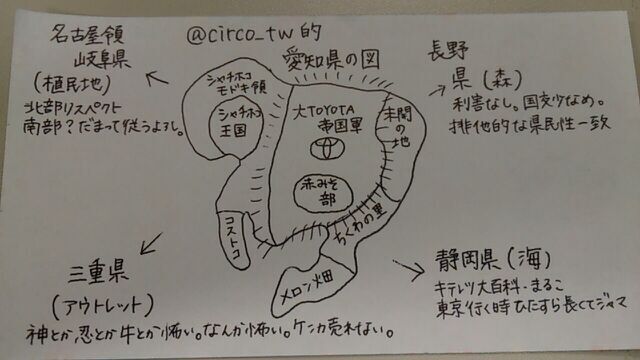 名古屋領
岐阜県
(植民地)
北部リスペクト
南部?だまって従うよろし。
@circo_tw的
愛知県の図
長野
県(森)
利害なし。国交少なめ。
排他的な県民性一致
シャチホコ
モドキ領
シャチホコ
王国
大TOYOTA
帝国軍
未開
の地
赤みそ
部
ちくわの里
コストコ
メロン畑
三重県
(アウトレット)
神とか忍とか牛とか怖い。なんか怖い。ケンカ売れない。
静岡県(海)
キテレツ大百科・まるこ
東京行く時ひたすら長くてジャマ